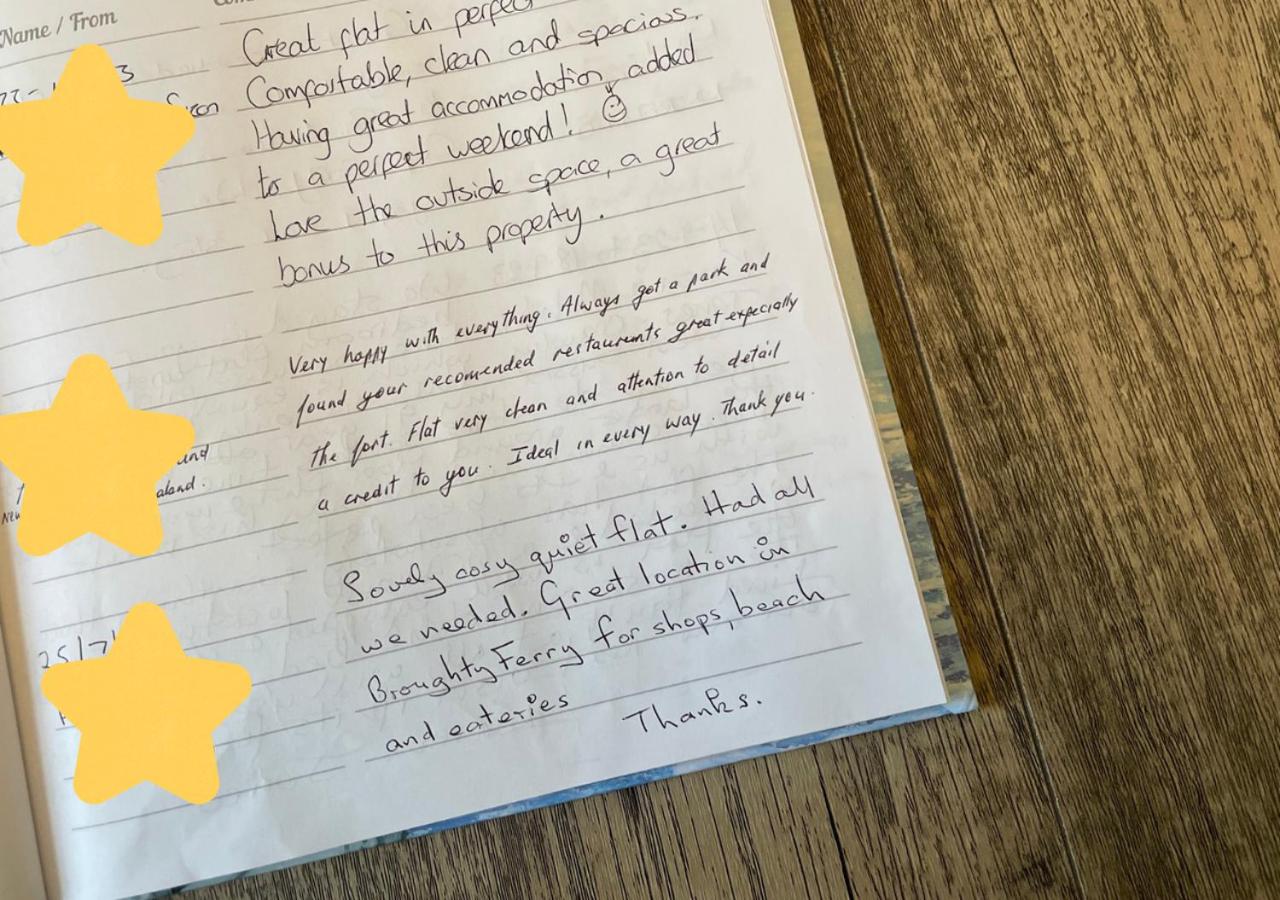 Name / From
Great flat in perfect
Comfortable, clean and spacious.
Having great accommodation, added
to a perfect weekend! ☺
Love the outside space, a great
bonus to this property.
Very happy with everything. Always got a park and
found your recomended restaurants great expecially
the fort. Flat very clean and attention to detail
a credit to you. Ideal in every way. Thank you.
Lovely cosy quiet flat. Had all
we needed. Great location in
25/7/
Broughty Ferry for shops, beach
and eateries Thanks.